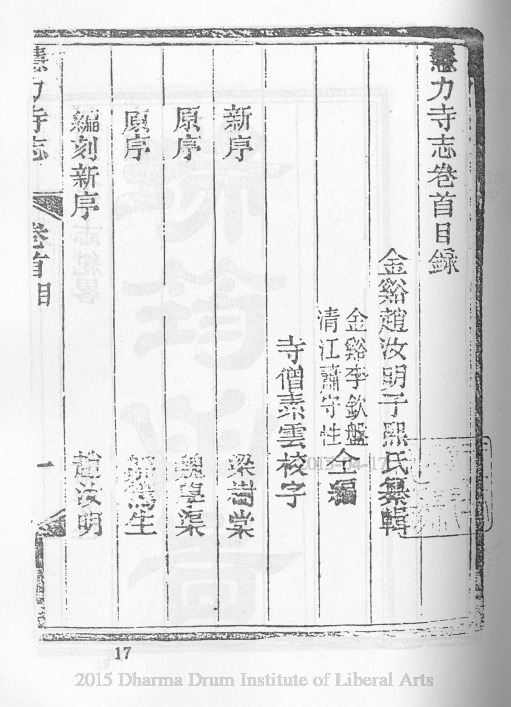 慧力寺志卷首目録
金谿趙汝明子熙氏纂輯
金谿李欽盤
清江蕭守性
仝編
寺僧素雲校字
新序 梁澍棠
原序 魏學渠
原序 生
編刻新序 趙汝明
慧力寺志 卷首目 一
17
2015 Dharma Drum Institute of Liberal Arts